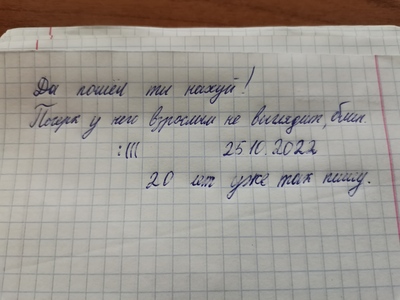 Да пошёл ты нахуй!
Почерк у него взрослым не выглядит, блин.
:((( 25.10.2022
20 лет уже так пишу.